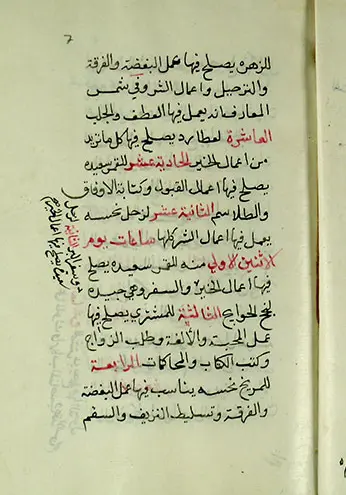 للزهره يصلح فيها عمل البغضة والفرقة
والترحيل واعمال الشر وفي شمس
المعارف انه يعمل فيها العطف والجلب
العاشرة لعطارد يصلح فيها كل ما تريد
من اعمال الخير الحادية عشر للقمر سعيده
يصلح فيها اعمال القبول وكتابة الاوفاق
والطلاسم الثانية عشر لزحل نحسه
يعمل فيها اعمال الشر كلها ساعات يوم
الاثنين الاولي منه للقمر سعيده يصلح
فيها اعمال الخير والسفر وهي جيده
لنجح الحوائج الثالثة للمشتري يصلح فيها
عمل المحبة والألفة وطلب الزواج
وكتب الكتاب والمحاكمات الرابعة
للمريخ نحسه يناسب فيها عمل البغضة
والفرقة وتسليط النزيف والسقم
الثانية لزحل